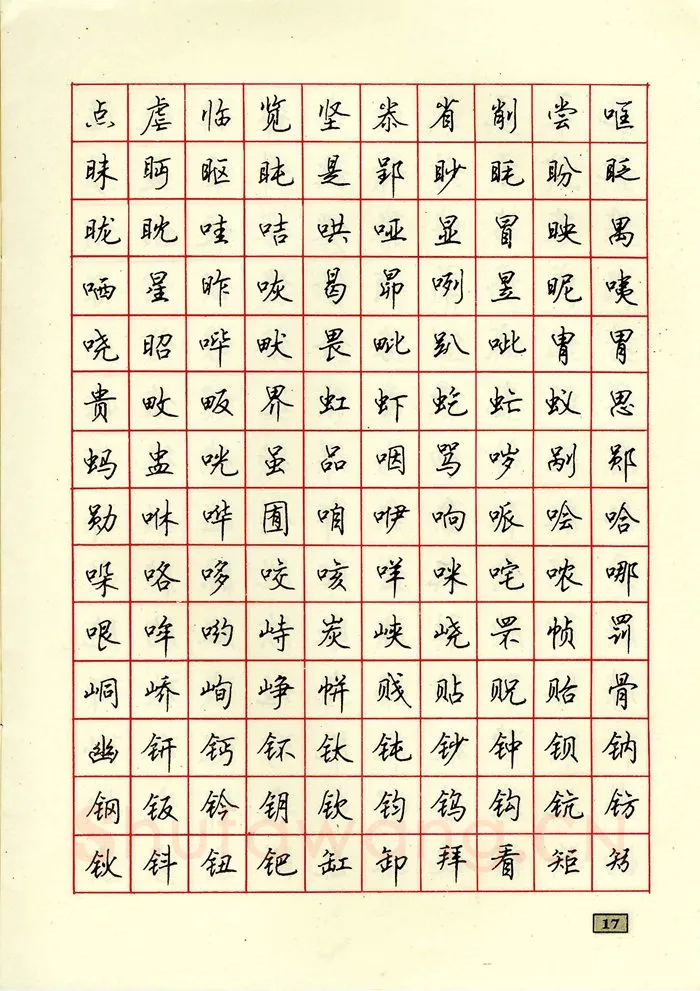 点虐临览坚恭省削尝哐
昧眄眍盹是郢眇眊盼眨
昽眈哇咭哄哑显冒映禺
哂星昨咴曷昴咧昱昵咦
哓昭哔畎畏毗趴呲胄胃
贵畋畈界虹虾虼虻蚁思
蚂盅咣虽品咽骂哕剐郧
勋咻哗囿咱咿响哌哙哈
哚咯哆咬咳咩咪咤哝哪
哏哞哟峙炭峡峣罘帧罚
峒峤峋峥帡贱贴贶贻骨
幽钘钙钚钛钝钞钟钡钠
钢钣钤钥钦钧钨钩钪钫
钬钭钮钯缸卸拜看矩
Shufawang.CN
17